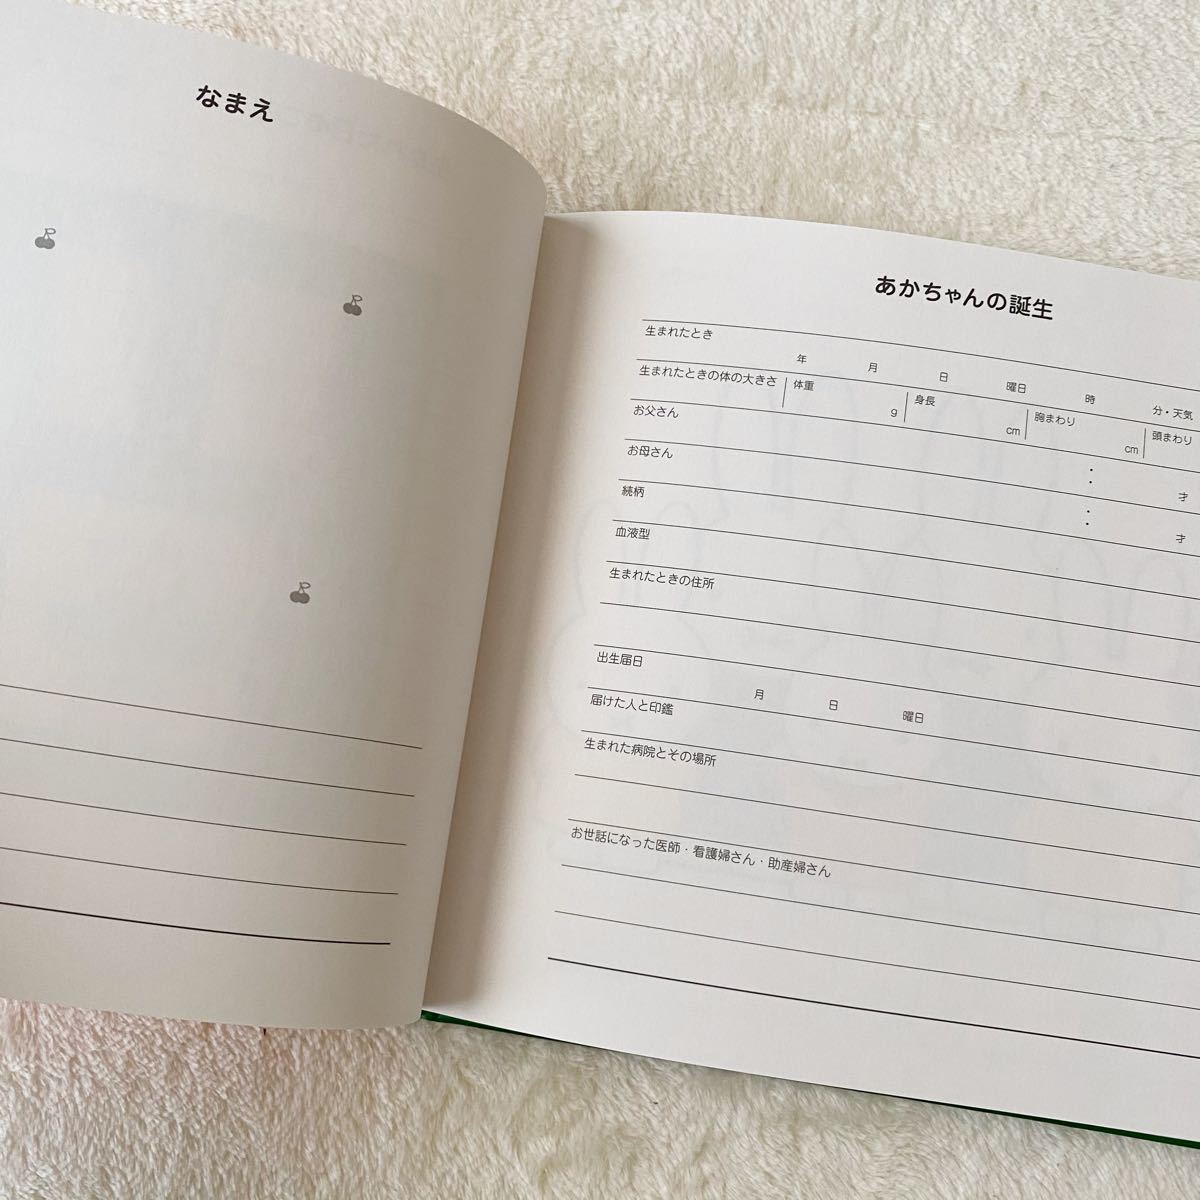 なまえ
あかちゃんの誕生
生まれたとき
年 月 日 曜日 時 分・天気
生まれたときの体の大きさ 体重 g 身長 cm 胸まわり cm 頭まわり
お父さん : 才
お母さん : 才
続柄
血液型
生まれたときの住所
出生届日
月 日 曜日
届けた人と印鑑
生まれた病院とその場所
お世話になった医師・看護婦さん・助産婦さん